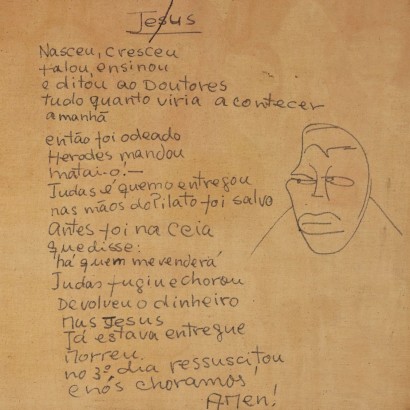 Jesus
Nasceu, cresceu
falou, ensinou
e ditou ao Doutores
tudo quanto viria acontecer
amanhã
então foi odeado
Herodes mandou
matai-o!—
Judas é quem o entregou
nas mãos do Pilato foi salvo
Antes foi na Ceia
que disse:
há quem me venderá
Judas fugiu e chorou
Devolveu o dinheiro
Mas Jesus
Já estava entregue
Morreu.
no 3º dia ressuscitou
e nós choramos,
AMen!